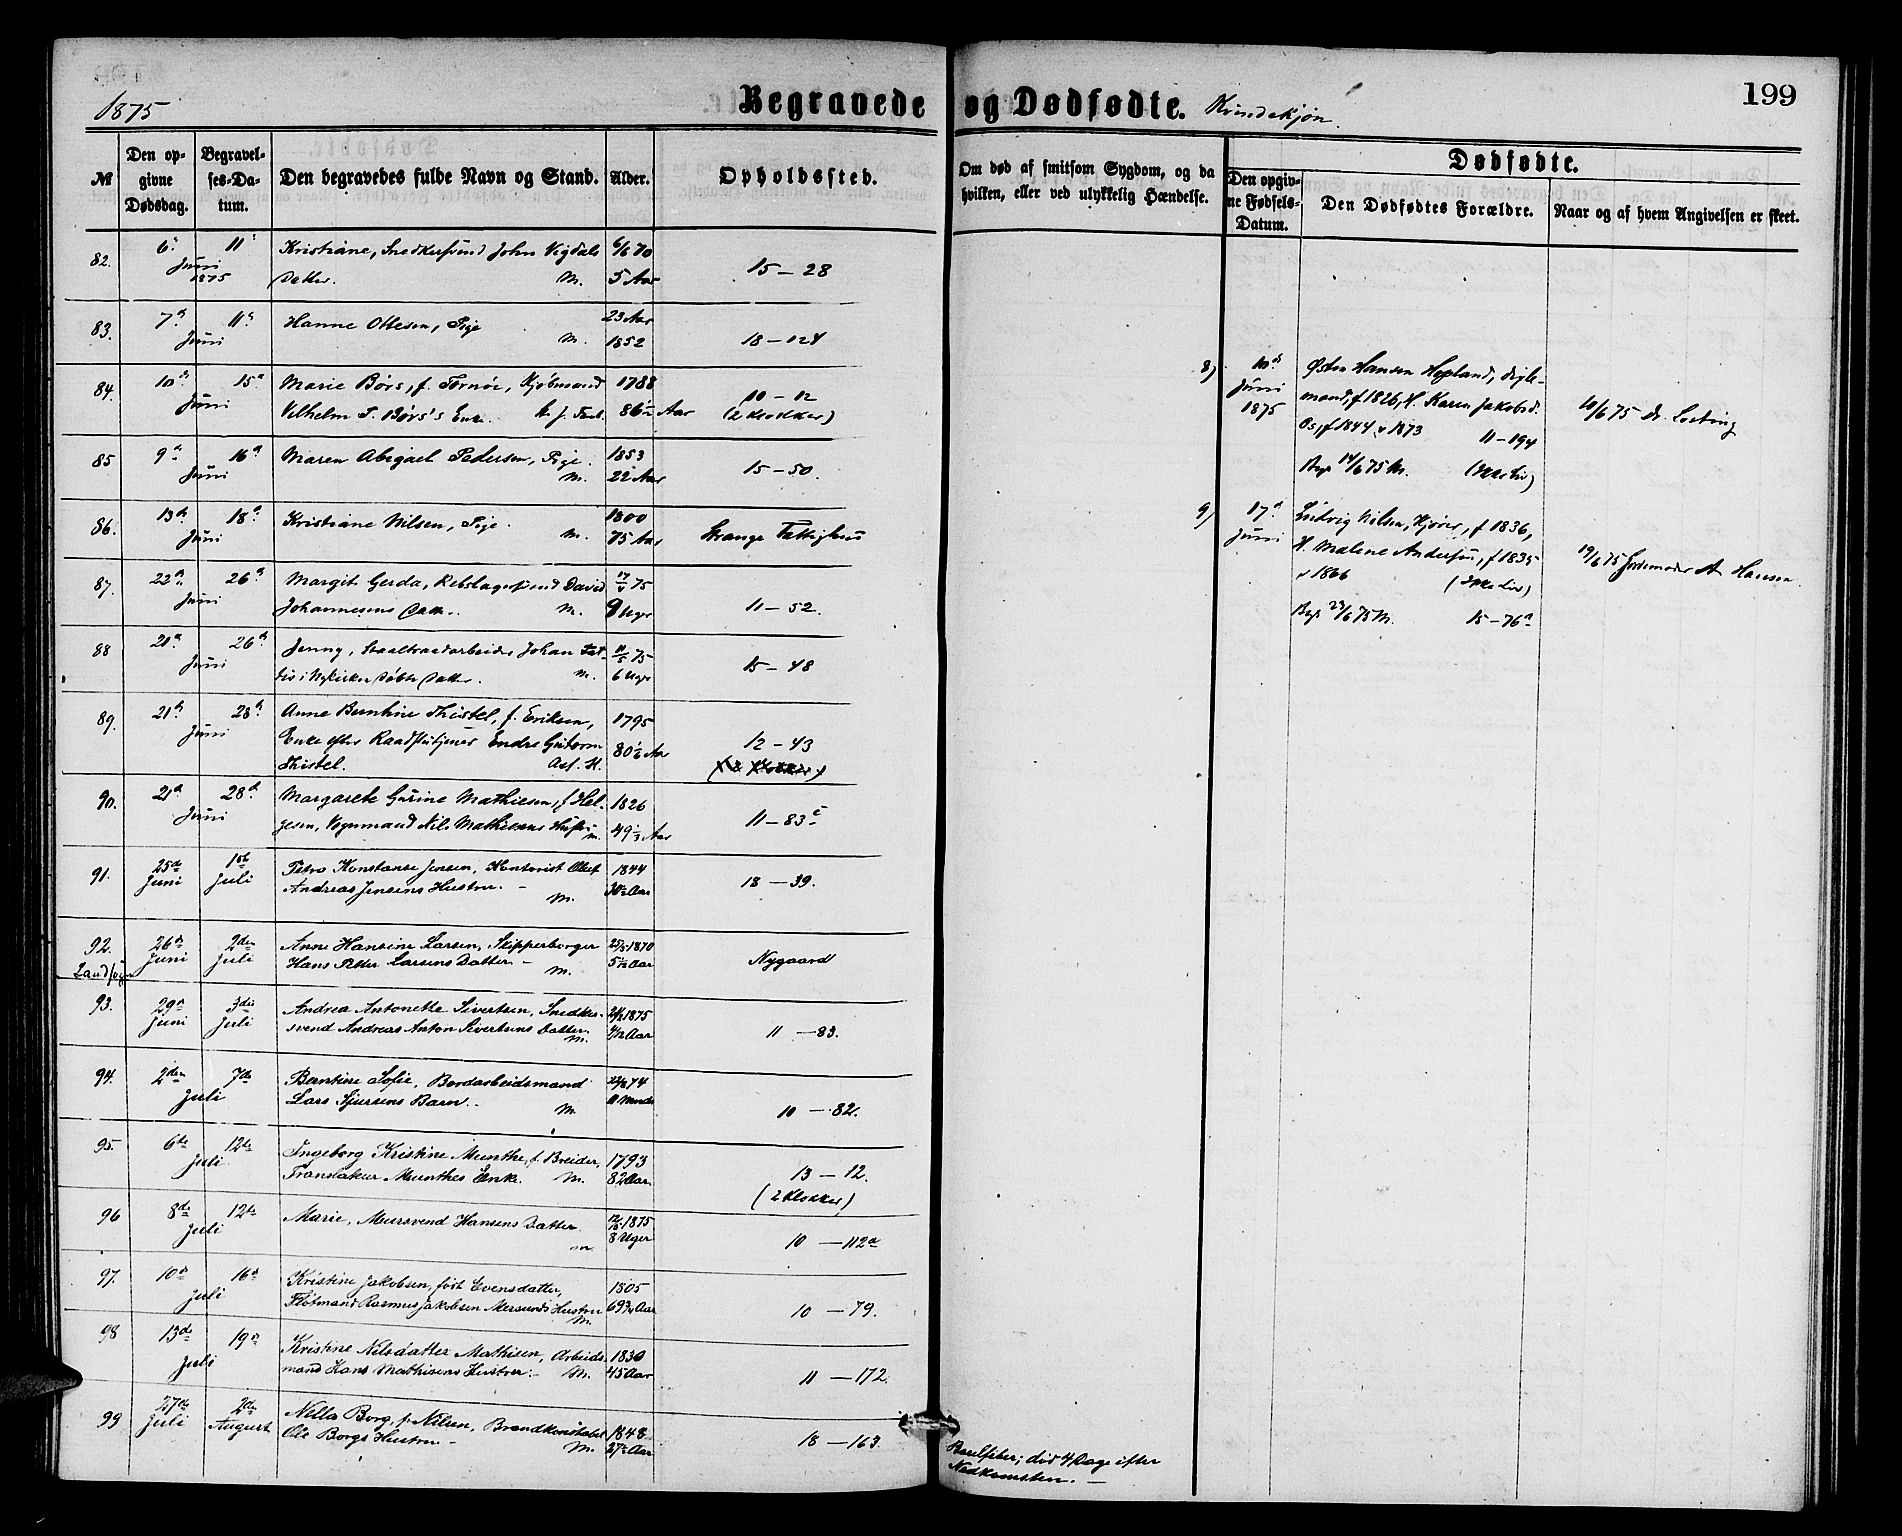 1875
Begravede og Dødfødte. Kvindekjøn.
199
№
Den opgivne Dødsdag.
Begravelses-Datum.
Den begravedes fulde Navn og Stand.
Alder.
Opholdssted.
Om død af smitsom Sygdom, og da hvilken, eller ved ulykkelig Hændelse.
Dødfødte.
Den opgivne Fødsels-Datum.
Den Dødfødtes Forældre.
Naar og af hvem Angivelsen er skeet.
82. 6. 11. Kristiane, Snedkersvend John Vigdals 6/6 70
Juni 1875 Datter. M. 5 Aar 15 – 28
83. 7d 11d Hanne Ottesen, Pige 23 Aar
Juni M. 1852 18 – 124
84. 10d 15d Marie Børs, f. Tornøe, Kjøbmand 1788 10 – 12
Juni Vilhelm Børs's Enke. 86½ Aar (2 Klokker)
85 9d 16d Maren Abigael Pedersen, Pige. 1853
Juni M. 22 Aar 15 – 50.
86. 13d 18d Kristiane Nilsen, Pige. 1800
Juni M. 75 Aar Strange Fattighus
87. 22d 26d Margit Gerda, Rebslagersvend David 17/4 75
Juni Johannesens Datt. M. 9 Uger 11 – 52.
88 20d 26d Jenny, Staaltraadarbeider Johan 11/5 75
Juni i Nykirken døbte Datter. M. 6 Uger 15 – 48
89. 21d 28d Anne Berntine Thistel, f. Eriksen, 1795
Juni Enke efter Raadstutjener Endre Guttorm 80½ Aar 12 – 43
Thistel. Ass. H.
90. 21d 28d Margarete Gurine Mathiesen, f. Hel- 1826
Juni gesen, Vognmand Nils Mathisens Hustru M. 49⅓ Aar 11 – 83c
91. 25de 1ste Petra Konstanse Jensen, Kontorist Oluf 1844
Juni Juli Andreas Jensens Hustru. – M. 30½ Aar 18 – 39.
92. 26d 2den Anne Hansine Larsen, Skipperborger 25/5 1870
Landsogn Juni Juli Hans Petter Larsens Datter. – M. 5 1/12 Aar Nygaard
93. 29d 3die Andrea Antonette Sivertsen, Snedker- 24/2 1875
Juni Juli svend Andreas Anton Sivertsens Datter. M. 4/12 Aar 11 – 83.
94. 2den 7de Berntine Sofie, Bordarbeidsmand
Juli Lars Sjursens Barn. M. 10 – 82.
95. 6te 12te Ingeborg Kristine Munthe, f. Breider, 1793
Juli Translatør Munthes Enke. M. 82 Aar 13 – 12.
(2 Klokker)
96 8de 12te Marie, Mursvend Hansens Datter 12/5 1875
Juli M. 8 Uger 10 – 112a
97. 10d 16d Kristine Jakobsen, født Evensdatter, 1805
Juli Fløtmand Rasmus Jakobsen Mersunds Hustru M. 69¾ Aar 10 – 79.
98 13de 19d Kristine Nilsdatter Mathisen, Arbeids- 1830
Juli mand Hans Mathisens Hustru. – M. 45 Aar 11 – 172.
99 27de 2den Nella Borg, f. Nilsen, Brandkonstabel 1848
Juli August Ole Borgs Hustru – M. 27½ Aar 18 – 163.
Barselfeber; død 4 Dage efter
Nedkomsten. –
8) 10d Juni 1875
Østen Hansen Hopland, Arbeids-
mand, f 1826, H. Karen Jakobsd.
Os, f 1844, v 1873 11 – 194
Begr 14/6 75 M.
10/6 75 Dr. Losting
9) 17d Juni
Ludvig Nilsen, Kjører, f 1836,
H. Malene Andersen, f 1835
v 1866
Begr 23/6 75 M. 15 – 76a
19/6 75 Jordemoder A. Hansen.